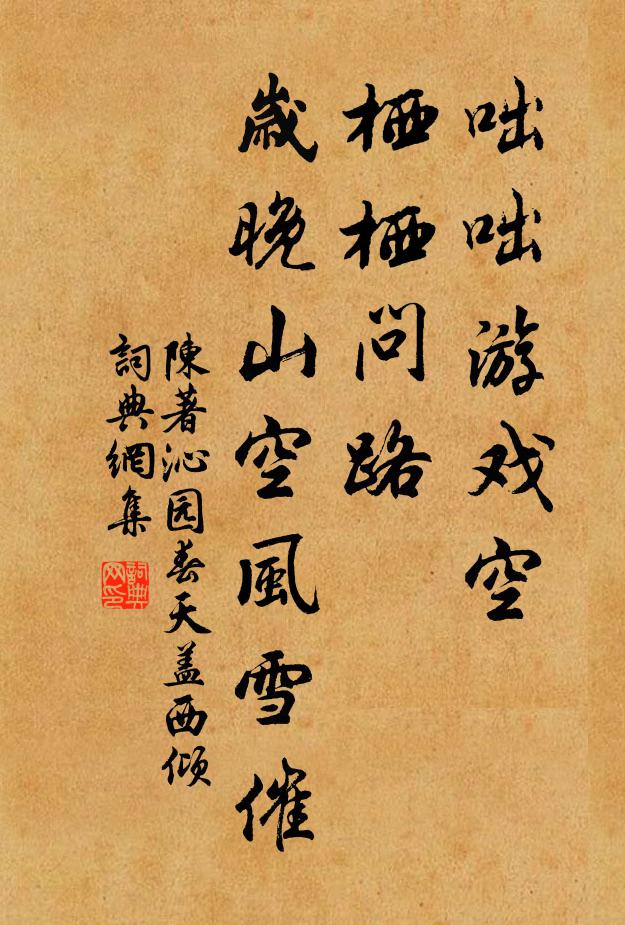 咄咄游戏空
栖栖问路
歳晚山空風雪催
陳著沁园春天盖西倾
詞典網集
詞典網印